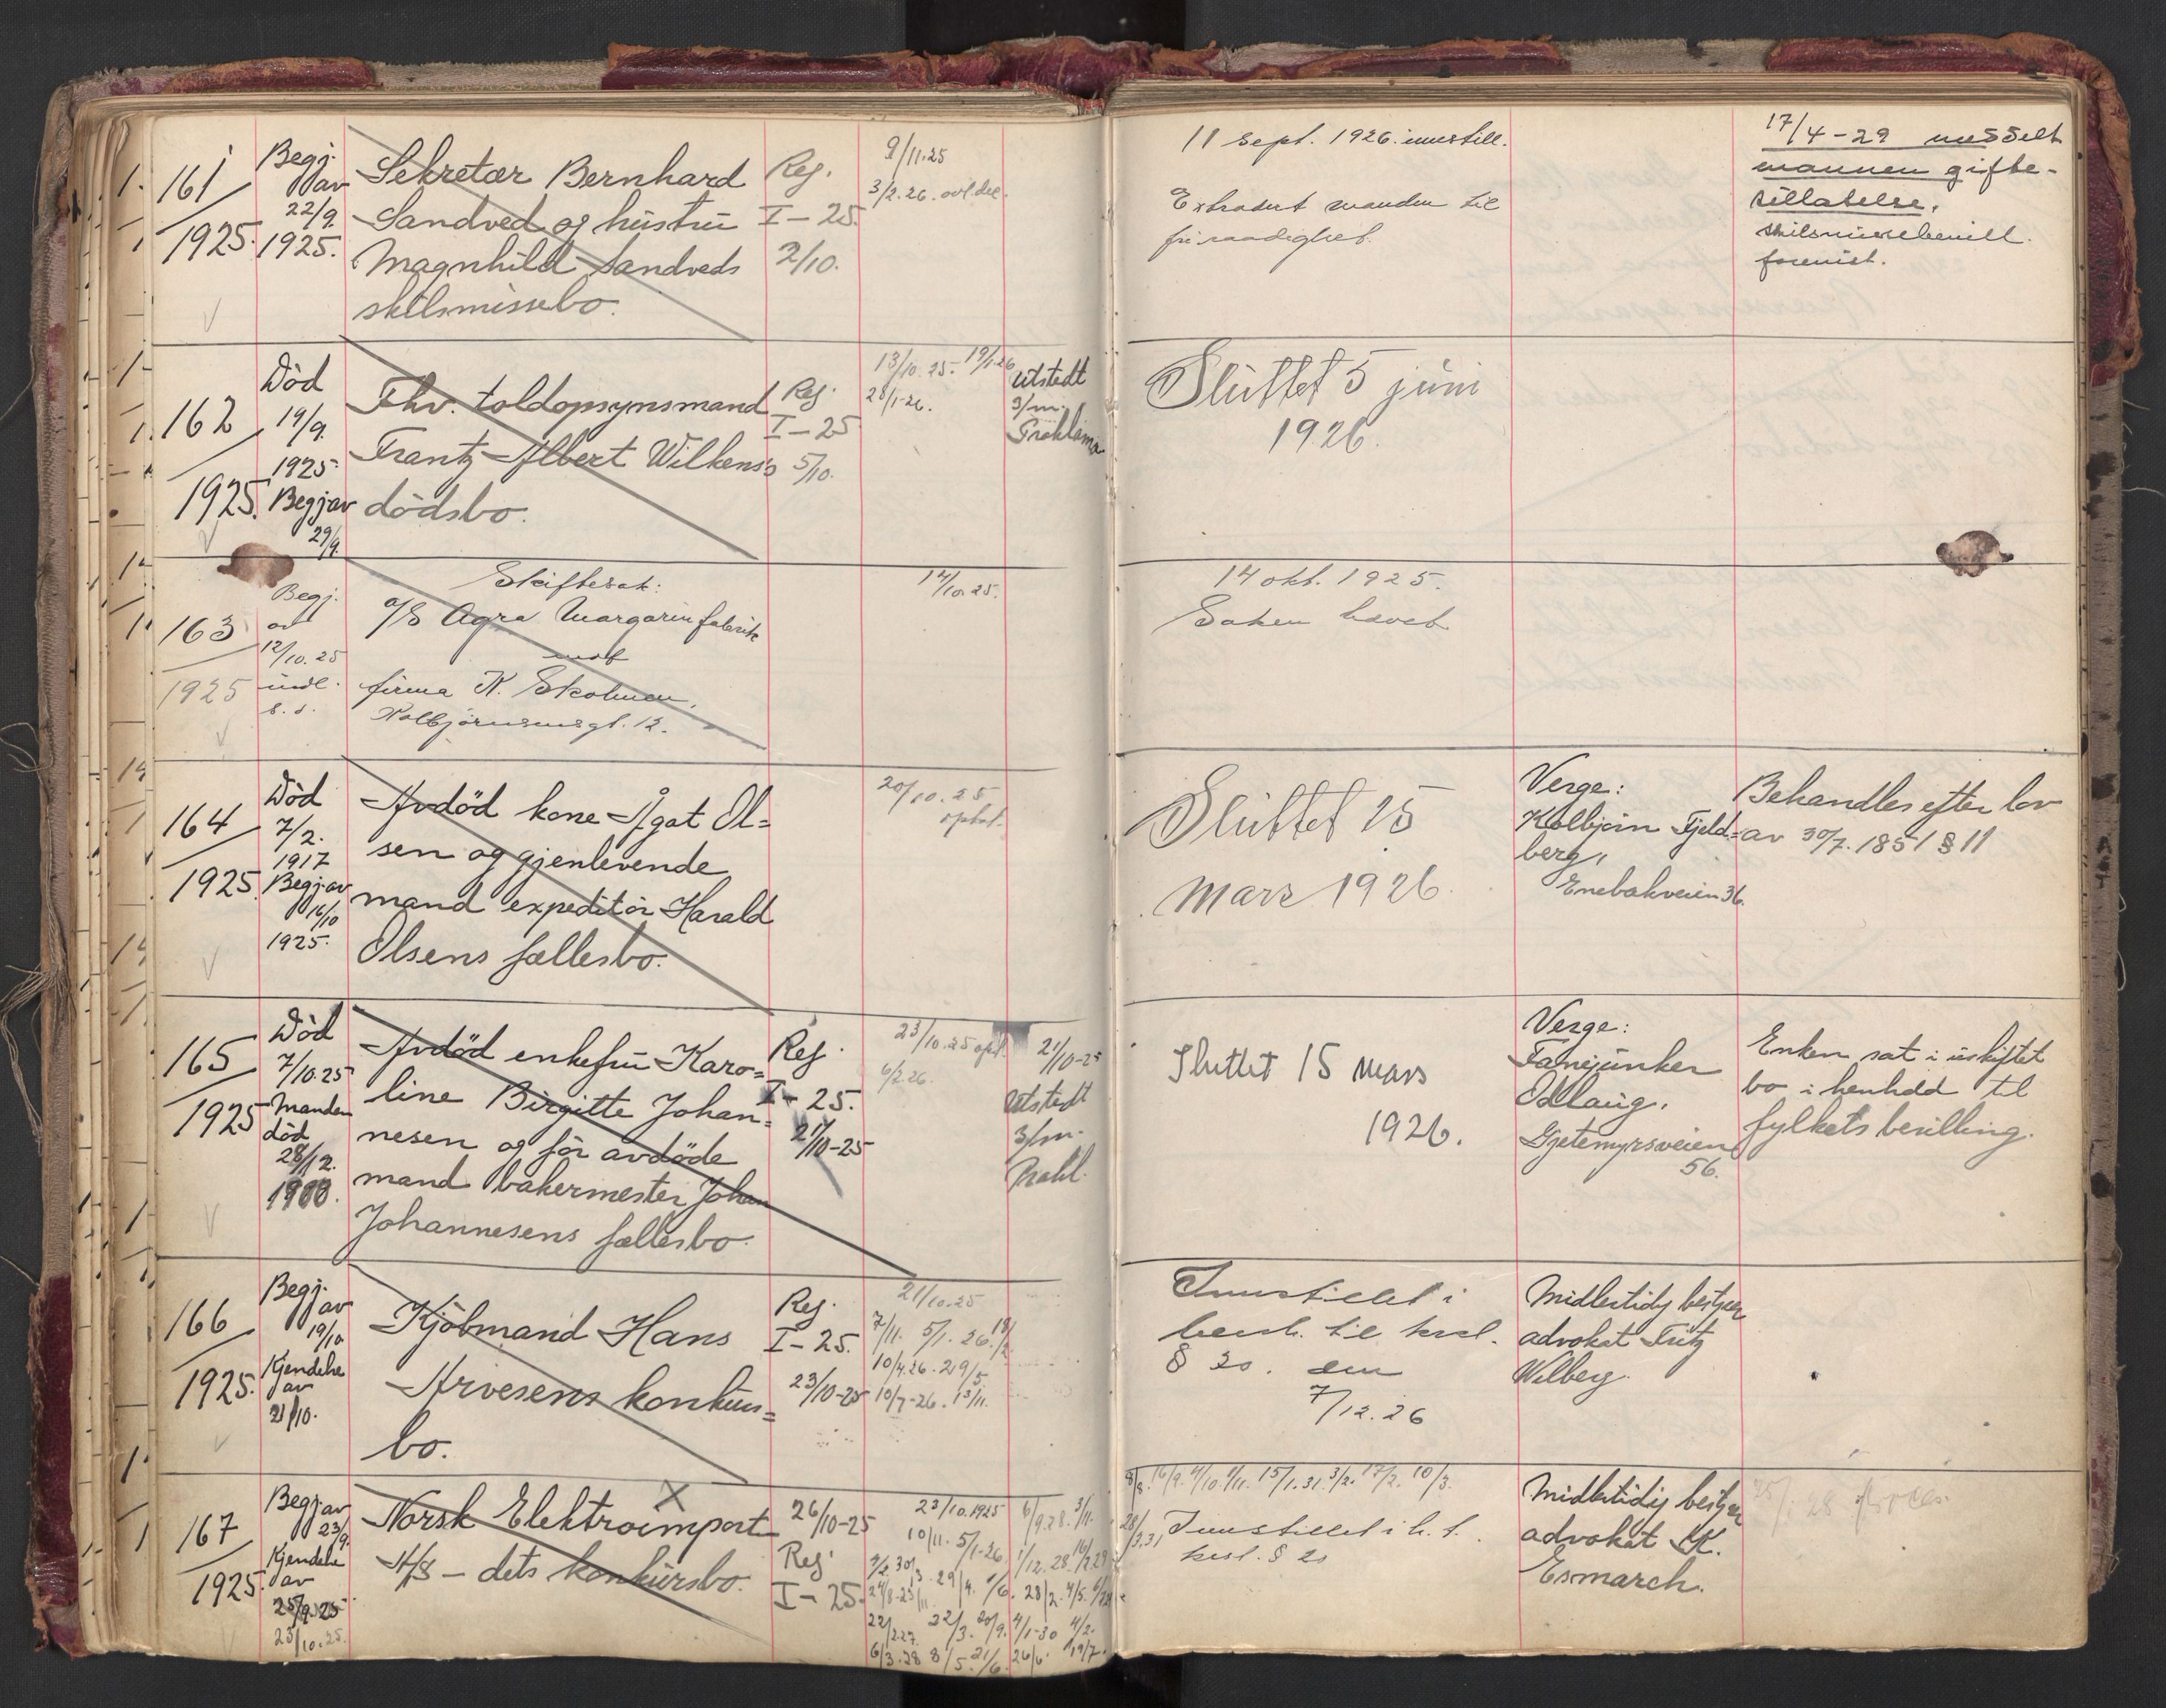 161
1925.
Begj.
av
22/9.
1925.
Sekretær Bernhard
Sandved og hustru
Magnhild Sandveds
skilsmissebo.
Reg.
I – 25.
2/10.
9/11.25
3/2.26.
11 sept. 1926. innstill.
Extradert manden til
fri raadighet.
17/4 – 29 meddelt
mannen gifte-
tillatelse.
162
1925.
Død
19/9.
1925.
Begj av
29/9.
Fhv. toldopsynsmand
Frantz Albert Wilkens's
dödsbo.
Reg.
I – 25
5/10.
13/10.25. 19/1-26
28/1-26.
Utstedt
3/m.
Proklama
Sluttet 5 juni
1926.
163
1925
Begj.
av
12/10.25
indl.
s.d.
Skiftesak:
A/S Agra Margarinfabrik
mot
firma K. Skolmen,
Kolbjørnsensgt. 12.
14/10.25.
14 okt. 1925.
Saken hævet
164
1925.
Död
7/2.
1917
Begj. av
16/10
1925.
Avdöd kone Ågot Ol=
sen og gjenlevende
mand expeditör Harald
Olsens fællesbo.
20/10.25
ophol.
Sluttet 15
Mars 1926.
Verge:
Kolbjörn Fjeld=
berg,
Enebakveien 36.
Behandles efter lov
av 30/7. 1851 § 11
165
1925
Död
7/10.25
Manden
död
28/12.
Avdöd enkefru Karo=
line Birgitte Johan=
nesen og för avdöde
mand bakermester Johan
Johannesens fællesbo.
Reg.
I – 25.
21/10-25
23/10.25
6/2.26.
21/10-25
Utstedt
3/m.
Prokl.
Sluttet 15 mars
1926.
Verge:
Fanejunker
Odlaug,
Gjetemyrsveien
56.
Enken sat i uskiftet
bo i henhold til
fylkets bevilling.
166
1925.
Begj.
av
19/10
Kjendelse
av
21/10.
Kjöbmand Hans
Arvesens konkurs=
bo.
Reg.
I – 25.
23/10-25
21/10.25
7/11. 5/1.26.
10/4.26. 29/5.
10/7-26. 13/11.
Innstillet i
henh. til kskl.
§ 20. den
7/12.26
Midlertidig bestyrer
advokat Fritz
Wilberg.
167
1925.
Begj av
23/9.
Kjendelse
av
23/10.25.
Norsk Elektroimport
A/S – dets konkursbo.
X
26/10-25
Reg.
I – 25.
23/10.1925
10/11. 5/1-26
22/2.27. 22/3. 20/9. 4/1-30 4/2.
6/3.28 8/5. 21/6. 26/6. 19/7.
8/8. 16/9. 4/10. 4/11. 15/1.31. 3/2. 17/2. 10/3.
28/3.31
Innstillet i h. t.
kskl. § 20
Midlertidig bestyrer
advokat K.
Esmarch.